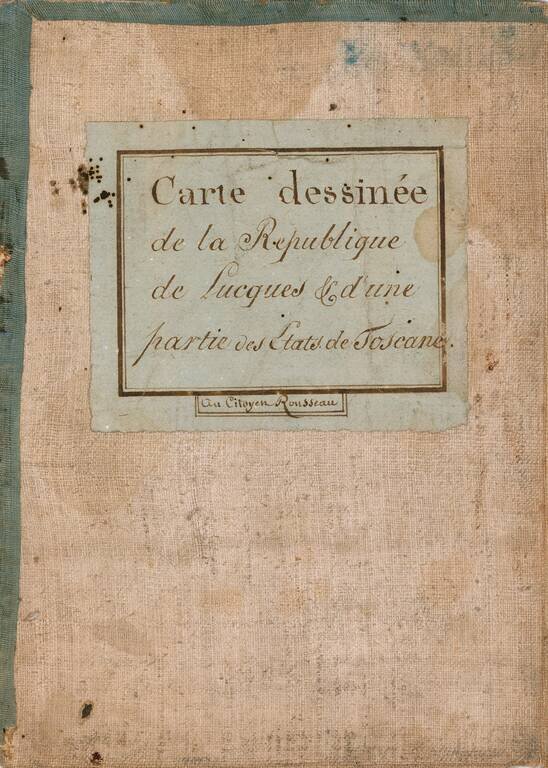 Carte dessinée
de la Republique
de Lucques & d'une
partie des Etats de Toscane.
Au Citoyen Rousseau